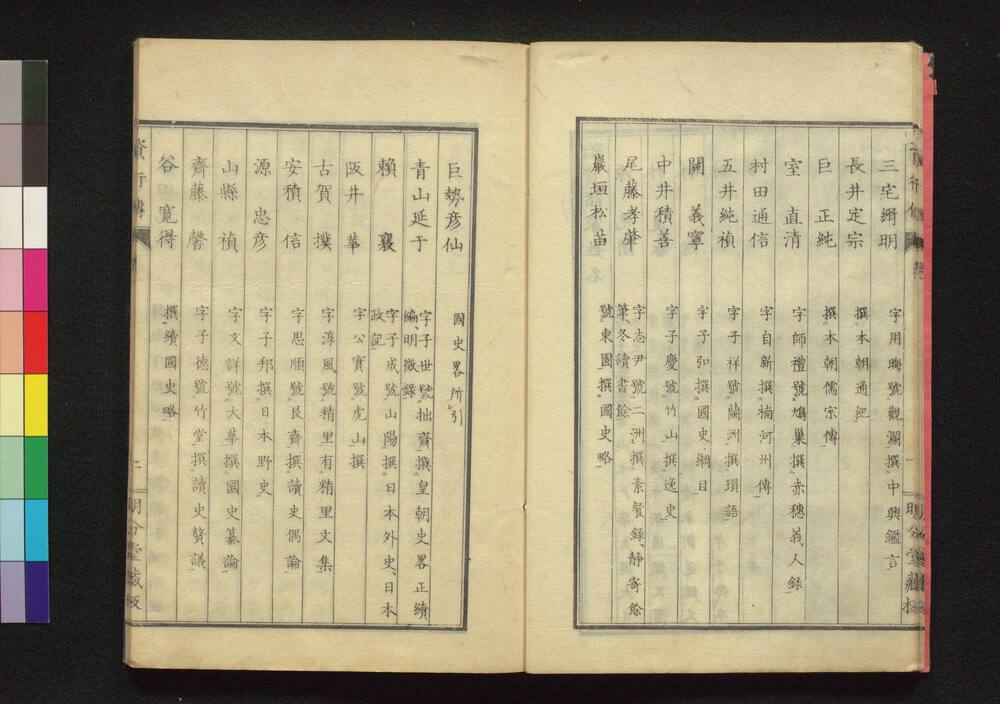 三宅緝明 字用晦號觀瀾撰中興鑑言
長井定宗 撰本朝通紀
巨正純 撰本朝儒宗傳
室直清 字師禮號鳩巢撰赤穗義人錄
村田通信 字自新撰楠河州傳
五井純禎 字子祥號蘭洲撰瑣語
關義寧 字子弘撰國史綱目
中井積善 字子慶號竹山撰逸史
尾藤孝肇 字志尹號二洲撰素餐錄、靜寄餘
筆、冬讀書餘
巖垣松苗 號東園撰國史略
巨勢彦仙 國史畧所引
青山延于 字子世號拙齋撰皇朝史畧正續
編、明徵錄
賴襄 字子成號山陽撰日本外史、日本
政記
阪井華 字公實號虎山撰
古賀撲 字淳風號精里有精里文集
安積信 字思順號艮齋撰讀史偶論
源忠彦 字子邦撰日本野史
山縣禎 字文祥號大華撰國史纂論
齋藤馨 字子德號竹堂撰讀史贅議
谷寬得 撰續國史略
二
明分堂藏板
一
明分堂藏板